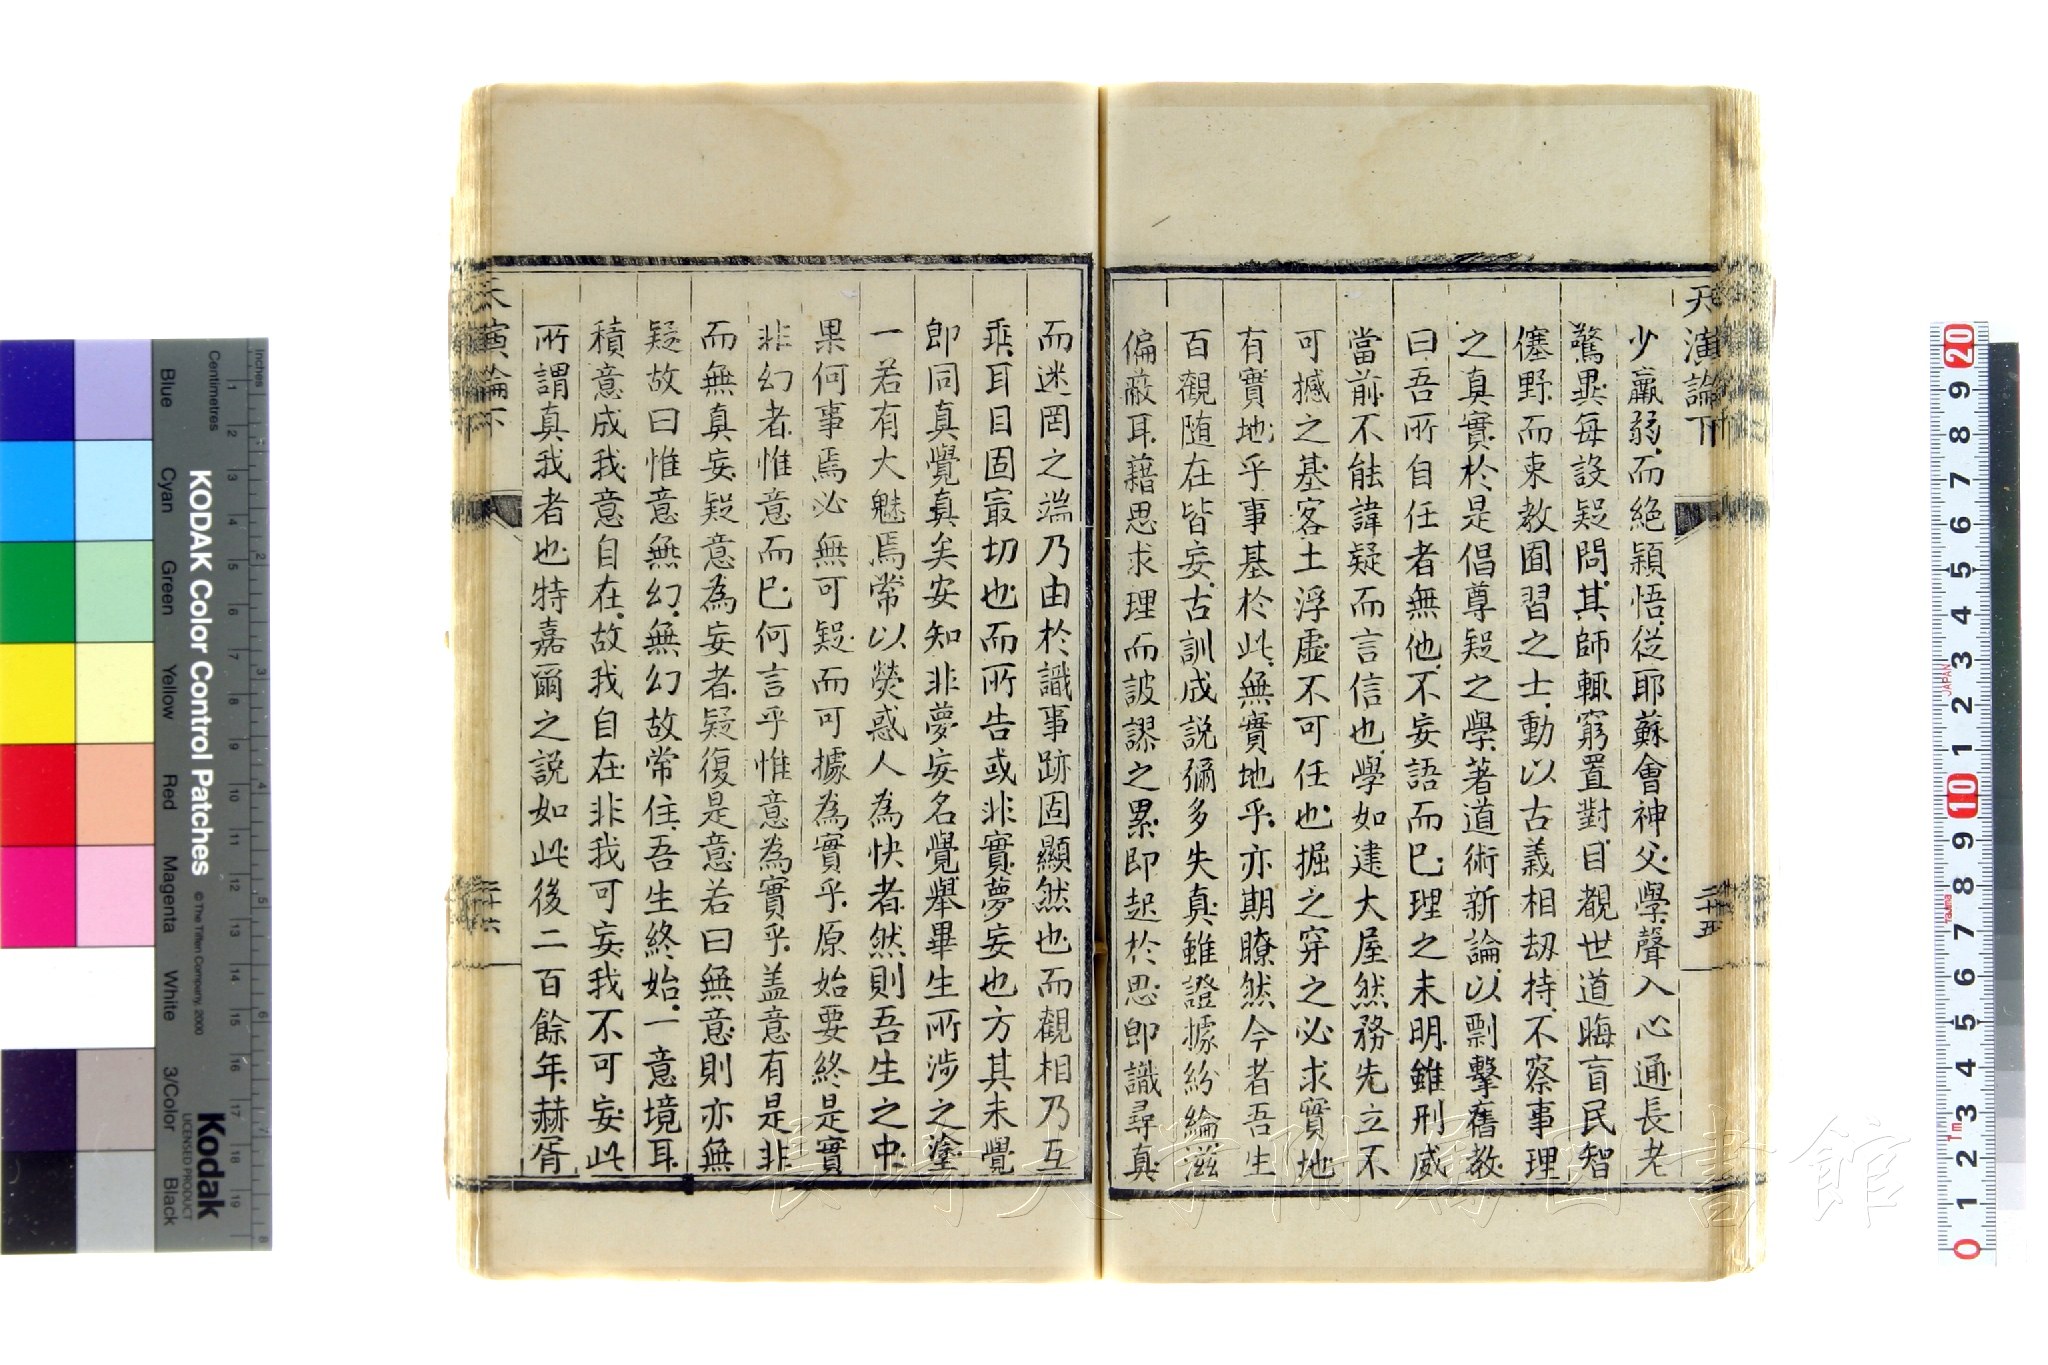 天演論下
二十五
少羸弱.而絶頴悟.從耶蘇會神父.學聲入心通.長老
驚異.每設疑問.其師輒窮置對.目覩世道晦盲.民智
僿野.而束教囿習之士.動以古義相刼持.不察事理
之真實.於是倡尊疑之學.著道術新論.以剽擊舊教.
曰.吾所自任者無他.不妄語而已.理之未明.雖刑威
當前.不能諱疑而言信也.學如建大屋然.務先立不
可撼之基.客土浮虛.不可任也.掘之穿之.必求實地.
有實地乎.事基於此.無實地乎.亦期瞭然.今者吾生
百觀.隨在皆妄.古訓成說.彌多失真.雖證據紛綸.滋
偏蔽耳.藉思求理.而詖謬之累.即起於思.即識尋真.
而迷罔之端.乃由於識.事跡固顯然也.而觀相乃互
乖.耳目固最切也.而所告或非實.夢妄也.方其未覺.
即同真覺.真矣.安知非夢妄名覺.舉畢生所涉之塗.
一若有大魅焉.常以熒惑人為快者.然則吾生之中.
果何事焉.必無可疑.而可據為實乎.原始要終.是實
非幻者.惟意而已.何言乎惟意為實乎.盖意有是非.
而無真妄.疑意為妄者.疑復是意.若曰無意.則亦無
疑.故曰惟意無幻.無幻故常住.吾生終始.一意境耳.
積意成我.意自在.故我自在.非我可妄.我不可妄.此
所謂真我者也.特嘉爾之說如此.後二百餘年.赫胥
天演論下
二十六
KODAK Color Control Patches
© The Tiffen Company, 2000
Kodak
LICENSED PRODUCT
Inches
Centimetres
Blue
Cyan
Green
Yellow
Red
Magenta
White
3/Color
Black
JAPAN
Tajima
長崎大学附属図書館